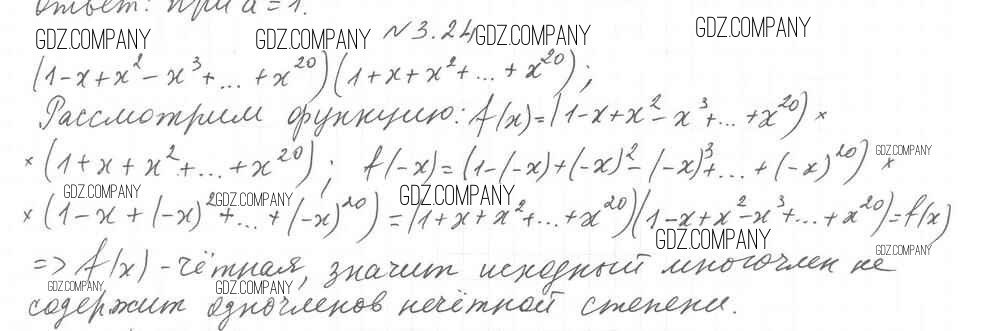 Ответ: при a = 1.
N 3.24
GDZ.COMPANY GDZ.COMPANY GDZ.COMPANY GDZ.COMPANY
(1-x+x²-x³+...+x²⁰)(1+x+x²+...+x²⁰);
Рассмотрим функцию: f(x)=(1-x+x²-x³+...+x²⁰)×
×(1+x+x²+...+x²⁰); f(-x)=(1-(-x)+(-x)²-(-x)³+...+(-x)²⁰)×
GDZ.COMPANY
GDZ.COMPANY GDZ.COMPANY GDZ.COMPANY
×(1-x+(-x)²+...+(-x)²⁰)=(1+x+x²+...+x²⁰)(1-x+x²-x³+...+x²⁰)=f(x)
GDZ.COMPANY GDZ.COMPANY
=> f(x) - чётная, значит исходный многочлен не
GDZ.COMPANY GDZ.COMPANY
содержит одночленов нечётной степени.